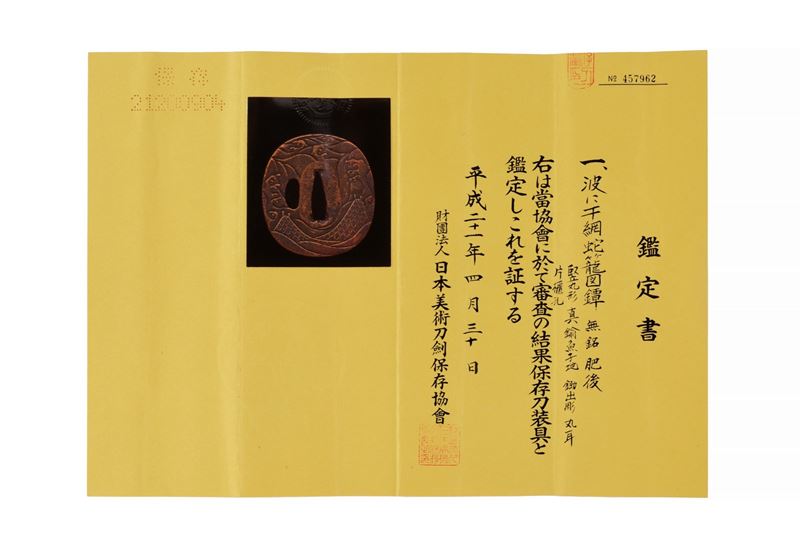 保存
21200904
№ 457962
鑑定書
一、波に干網蛇籠図鐔 無銘 肥後
竪丸形 真鍮魚子地 鋤出彫 丸耳
片櫃孔
右は當協會に於て審査の結果保存刀装具と
鑑定しこれを証する
平成二十一年四月三十日
財團法人 日本美術刀劍保存協會